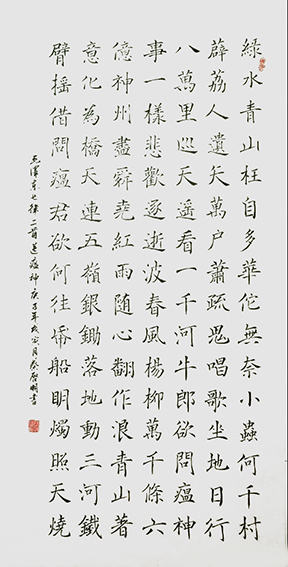 綠水青山枉自多華佗無奈小蟲何千村
薜荔人遺矢萬户蕭疏鬼唱歌坐地日行
八萬里巡天遥看一千河牛郎欲問瘟神
事一樣悲歡逐逝波春風楊柳萬千條六
億神州盡舜堯紅雨随心翻作浪青山著
意化為橋天連五嶺銀鋤落地動三河鐵
臂摇借問瘟君欲何往帋船明燭照天燒
毛澤東七律二首送瘟神庚子年戊寅月啓明書